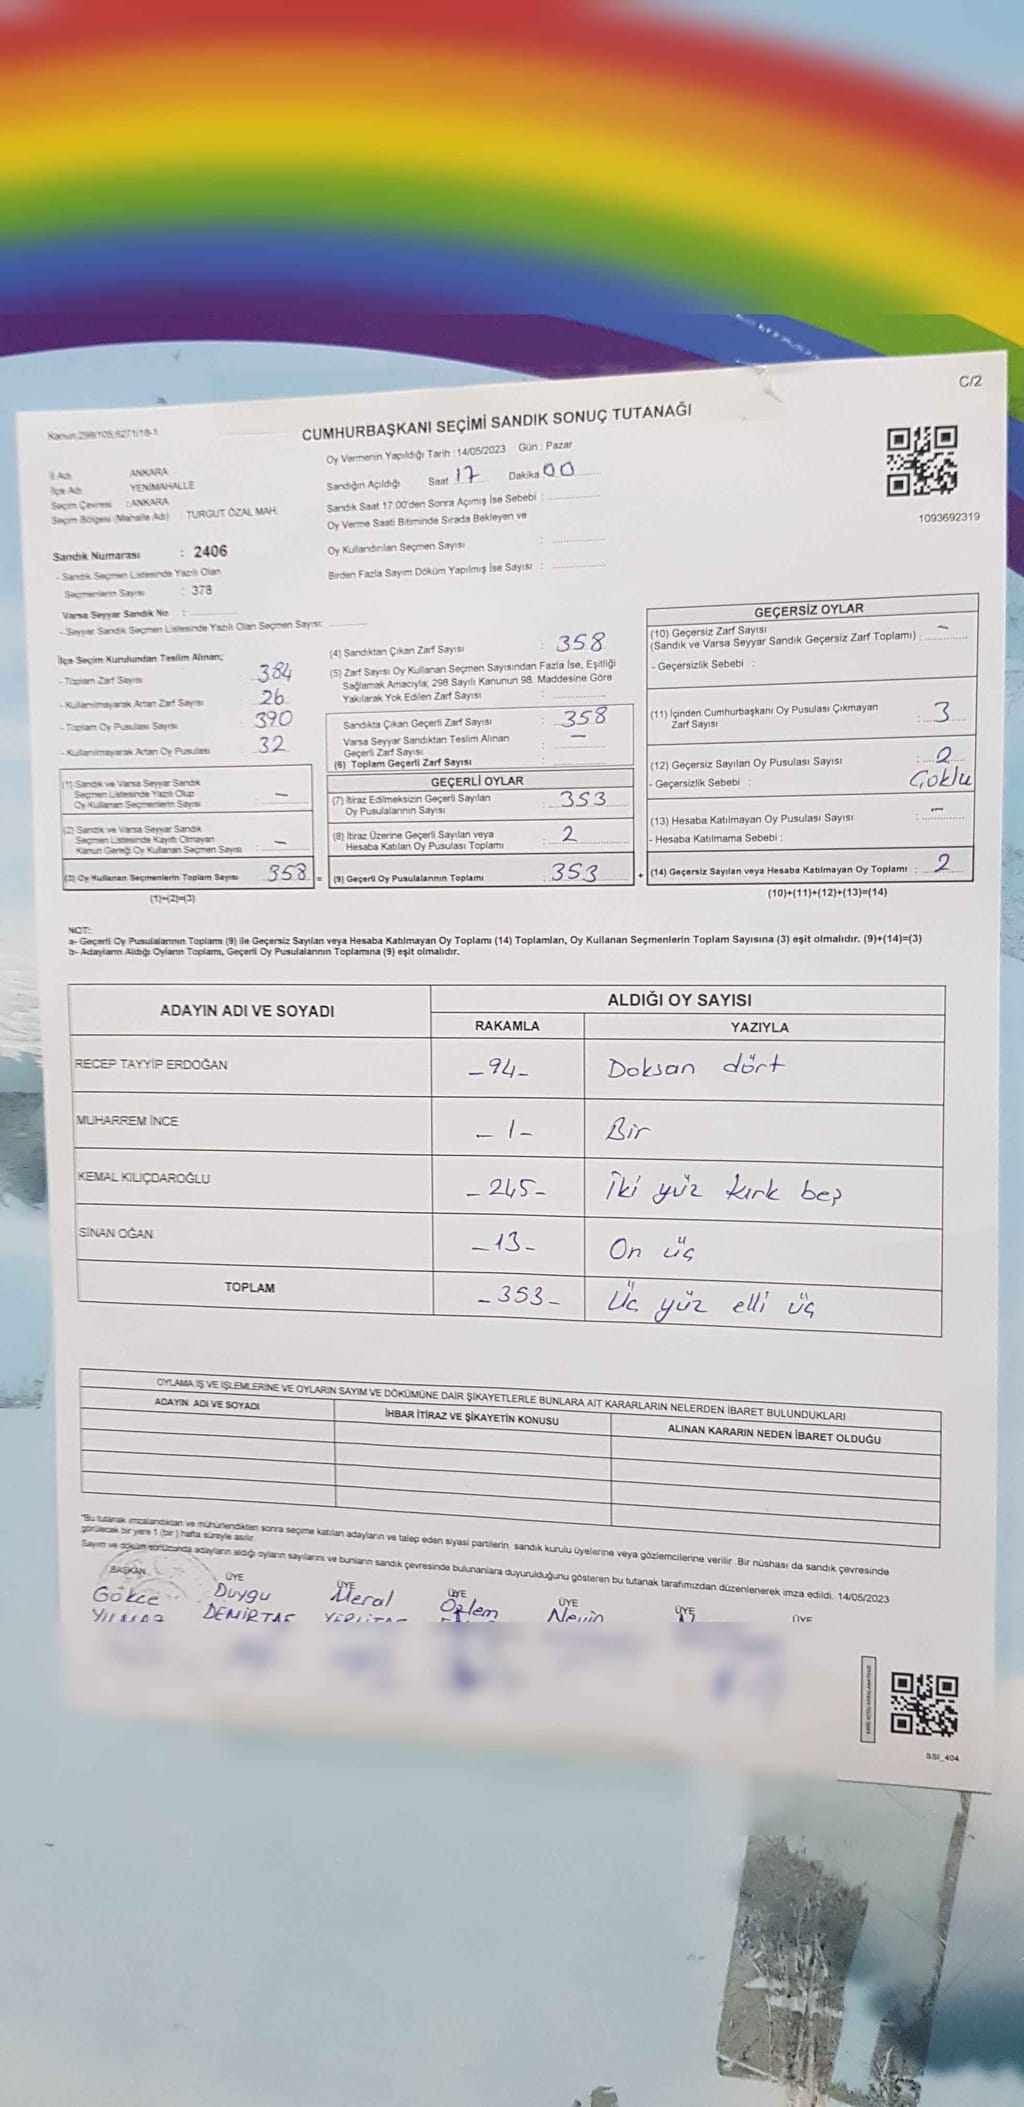 C/2
Kanun:298/105,6271/18-1
CUMHURBAŞKANI SEÇİMİ SANDIK SONUÇ TUTANAĞI
Oy Vermenin Yapıldığı Tarih : 14/05/2023 Gün : Pazar
Sandığın Açıldığı Saat 17 Dakika 00
Sandık Saat 17:00'den Sonra Açımış İse Sebebi :
Oy Verme Saati Bitiminde Sırada Bekleyen ve
Oy Kullandırılan Seçmen Sayısı :
Birden Fazla Sayım Döküm Yapılmış İse Sayısı :
İl Adı ANKARA
İlçe Adı YENİMAHALLE
Seçim Çevresi : ANKARA
Seçim Bölgesi (Mahalle Adı) : TURGUT ÖZAL MAH.
Sandık Numarası : 2406
- Sandık Seçmen Listesinde Yazılı Olan
Seçmenlerin Sayısı : 378
Varsa Seyyar Sandık No :
- Seyyar Sandık Seçmen Listesinde Yazılı Olan Seçmen Sayısı:
1093692319
İlçe Seçim Kurulundan Teslim Alınan;
- Toplam Zarf Sayısı : 384
- Kullanılmayarak Artan Zarf Sayısı : 26
- Toplam Oy Pusulası Sayısı : 390
- Kullanılmayarak Artan Oy Pusulası : 32
(1) Sandık ve Varsa Seyyar Sandık
Seçmen Listesinde Yazılı Olup
Oy Kullanan Seçmenlerin Sayısı : —
(2) Sandık ve Varsa Seyyar Sandık
Seçmen Listesinde Kayıtlı Olmayan
Kanun Gereği Oy Kullanan Seçmen Sayısı : —
(3) Oy Kullanan Seçmenlerin Toplam Sayısı 358 =
(1)+(2)=(3)
(4) Sandıktan Çıkan Zarf Sayısı : 358
(5) Zarf Sayısı Oy Kullanan Seçmen Sayısından Fazla İse, Eşitliği
Sağlamak Amacıyla; 298 Sayılı Kanunun 98. Maddesine Göre
Yakılarak Yok Edilen Zarf Sayısı :
Sandıkta Çıkan Geçerli Zarf Sayısı : 358
Varsa Seyyar Sandıktan Teslim Alınan
Geçerli Zarf Sayısı : —
(6) Toplam Geçerli Zarf Sayısı :
GEÇERLİ OYLAR
(7) İtiraz Edilmeksizin Geçerli Sayılan
Oy Pusulalarının Sayısı : 353
(8) İtiraz Üzerine Geçerli Sayılan veya
Hesaba Katılan Oy Pusulası Toplamı : 2
(9) Geçerli Oy Pusulalarının Toplamı : 353 +
GEÇERSİZ OYLAR
(10) Geçersiz Zarf Sayısı
(Sandık ve Varsa Seyyar Sandık Geçersiz Zarf Toplamı) : —
- Geçersizlik Sebebi :
(11) İçinden Cumhurbaşkanı Oy Pusulası Çıkmayan
Zarf Sayısı : 3
(12) Geçersiz Sayılan Oy Pusulası Sayısı : 2
- Geçersizlik Sebebi : Çoklu
(13) Hesaba Katılmayan Oy Pusulası Sayısı : —
- Hesaba Katılmama Sebebi :
(14) Geçersiz Sayılan veya Hesaba Katılmayan Oy Toplamı : 2
(10)+(11)+(12)+(13)=(14)
NOT:
a- Geçerli Oy Pusulalarının Toplamı (9) ile Geçersiz Sayılan veya Hesaba Katılmayan Oy Toplamı (14) Toplamları, Oy Kullanan Seçmenlerin Toplam Sayısına (3) eşit olmalıdır. (9)+(14)=(3)
b- Adayların Aldığı Oyların Toplamı, Geçerli Oy Pusulalarının Toplamına (9) eşit olmalıdır.
ADAYIN ADI VE SOYADI ALDIĞI OY SAYISI
RAKAMLA YAZIYLA
RECEP TAYYİP ERDOĞAN -94- Doksan dört
MUHARREM İNCE -1- Bir
KEMAL KILIÇDAROĞLU -245- İki yüz kırk beş
SİNAN OĞAN -13- On üç
TOPLAM -353- Üç yüz elli üç
OYLAMA İŞ VE İŞLEMLERİNE VE OYLARIN SAYIM VE DÖKÜMÜNE DAİR ŞİKAYETLERLE BUNLARA AİT KARARLARIN NELERDEN İBARET BULUNDUKLARI
ADAYIN ADI VE SOYADI İHBAR İTİRAZ VE ŞİKAYETİN KONUSU ALINAN KARARIN NEDEN İBARET OLDUĞU
"Bu tutanak imzalandıktan ve mühürlendikten sonra seçme katılan adayların ve talep eden siyasi partilerin sandık kurulu üyelerine veya gözlemcilerine verilir. Bir nüshası da sandık çevresinde
görülecek bir yere 1 (bir) hafta süreyle asılır.
Sayım ve döküm sonucunda adayların aldığı oyların sayılarını ve bunların sandık çevresinde bulunanlara duyurulduğunu gösteren bu tutanak tarafımızdan düzenlenerek imza edildi. 14/05/2023
BAŞKAN ÜYE ÜYE ÜYE ÜYE ÜYE ÜYE
Gökçe Duygu Meral Özlem Nevin
YILMAZ DEMİRTAŞ
SSI_404